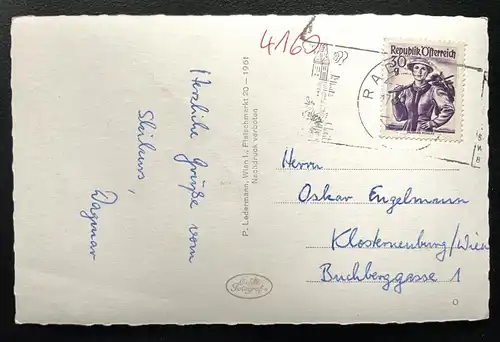 4160
Republik Österreich
30
g
RA
Herzliche Grüße vom
Skikurs,
Dagmar
P. Ledermann, Wien I., Fleischmarkt 20 – 1961
Nachdruck verboten
Herrn
Oskar Engelmann
Klosterneuburg/Wien
Buchberggasse 1
Echte
Fotografie